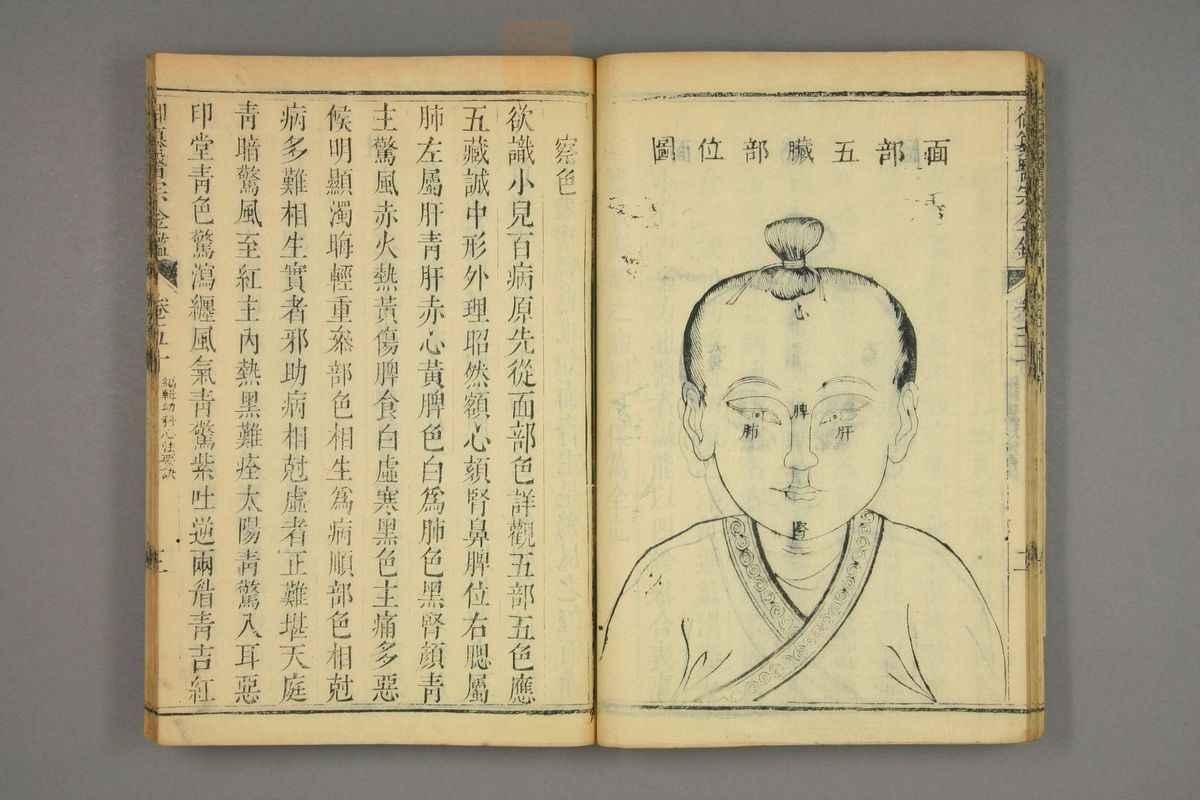 御纂醫宗金鑑
卷五十
面部五臟部位圖
心
脾
肝
肺
腎
察色
欲識小兒百病原先從面部色詳觀五部五色應
五藏誠中形外理昭然額心頦腎鼻脾位右腮屬
肺左屬肝青肝赤心黃脾色白爲肺色黑腎顏青
主驚風赤火熱黃傷脾食白虛寒黑色主痛多惡
候明顯濁晦輕重叅部色相生爲病順部色相尅
病多難相生實者邪助病相尅虛者正難堪天庭
青暗驚風至紅主內熱黑難痊太陽青驚入耳惡
印堂青色驚瀉纏風氣青驚紫吐逆兩眉青吉紅
御纂醫宗金鑑
卷五十
編輯幼科心法要訣